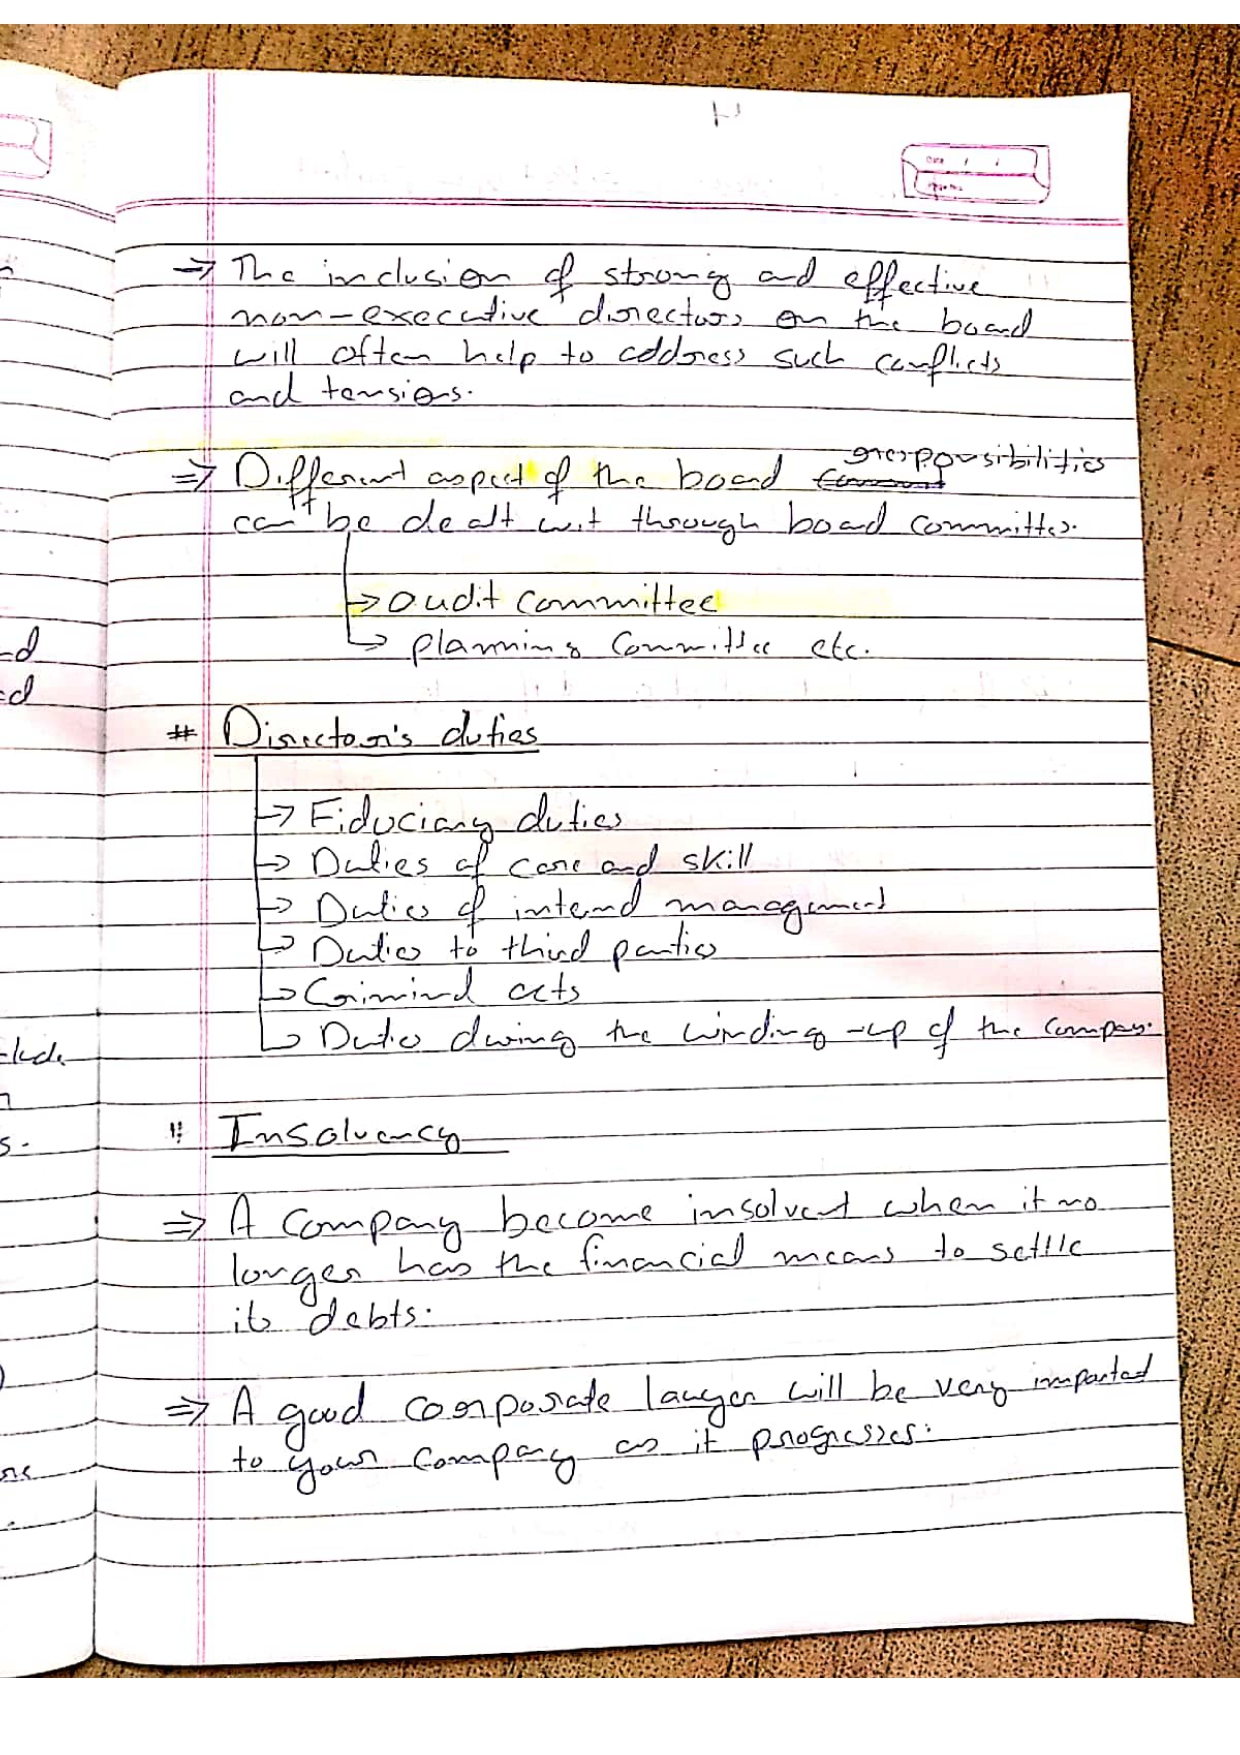 Date / /
⇒ The inclusion of strong and effective
non-executive directors on the board
will often help to address such conflicts
and tensions.
⇒ Different aspect of the board responsibilities
can be dealt wit through board committes.
→ audit committee
→ planning Committee etc.
# Director's duties
→ Fiduciary duties
→ Duties of care and skill
→ Duties of internal management
→ Duties to third parties
→ Criminal acts
→ Duties during the winding-up of the company.
# Insolvency
⇒ A company become insolvent when it no
longer has the financial means to settle
its debts.
⇒ A good corporate lawyer will be very important
to your company as it progresses.